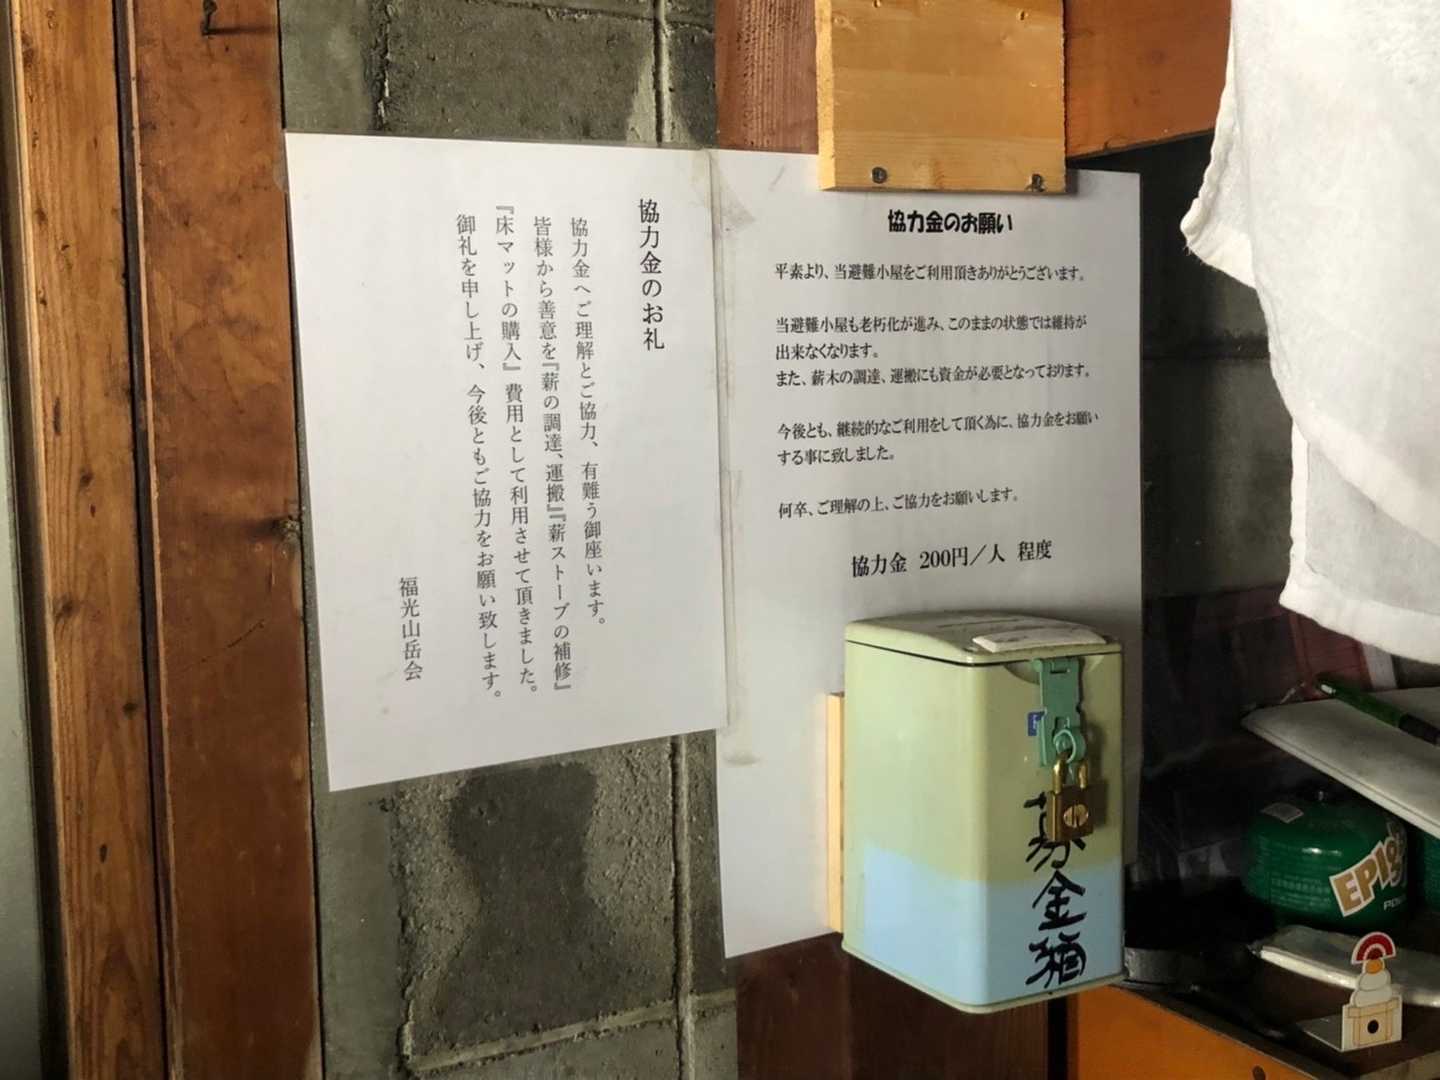 協力金のお礼
協力金へご理解とご協力、有難う御座います。
皆様から善意を『薪の調達、運搬』『薪ストーブの補修』
『床マットの購入』費用として利用させて頂きました。
御礼を申し上げ、今後ともご協力をお願い致します。
福光山岳会
協力金のお願い
平素より、当避難小屋をご利用頂きありがとうございます。
当避難小屋も老朽化が進み、このままの状態では維持が
出来なくなります。
また、薪木の調達、運搬にも資金が必要となっております。
今後とも、継続的なご利用をして頂く為に、協力金をお願い
する事に致しました。
何卒、ご理解の上、ご協力をお願いします。
協力金 200円／人 程度
募金箱
EPIgas